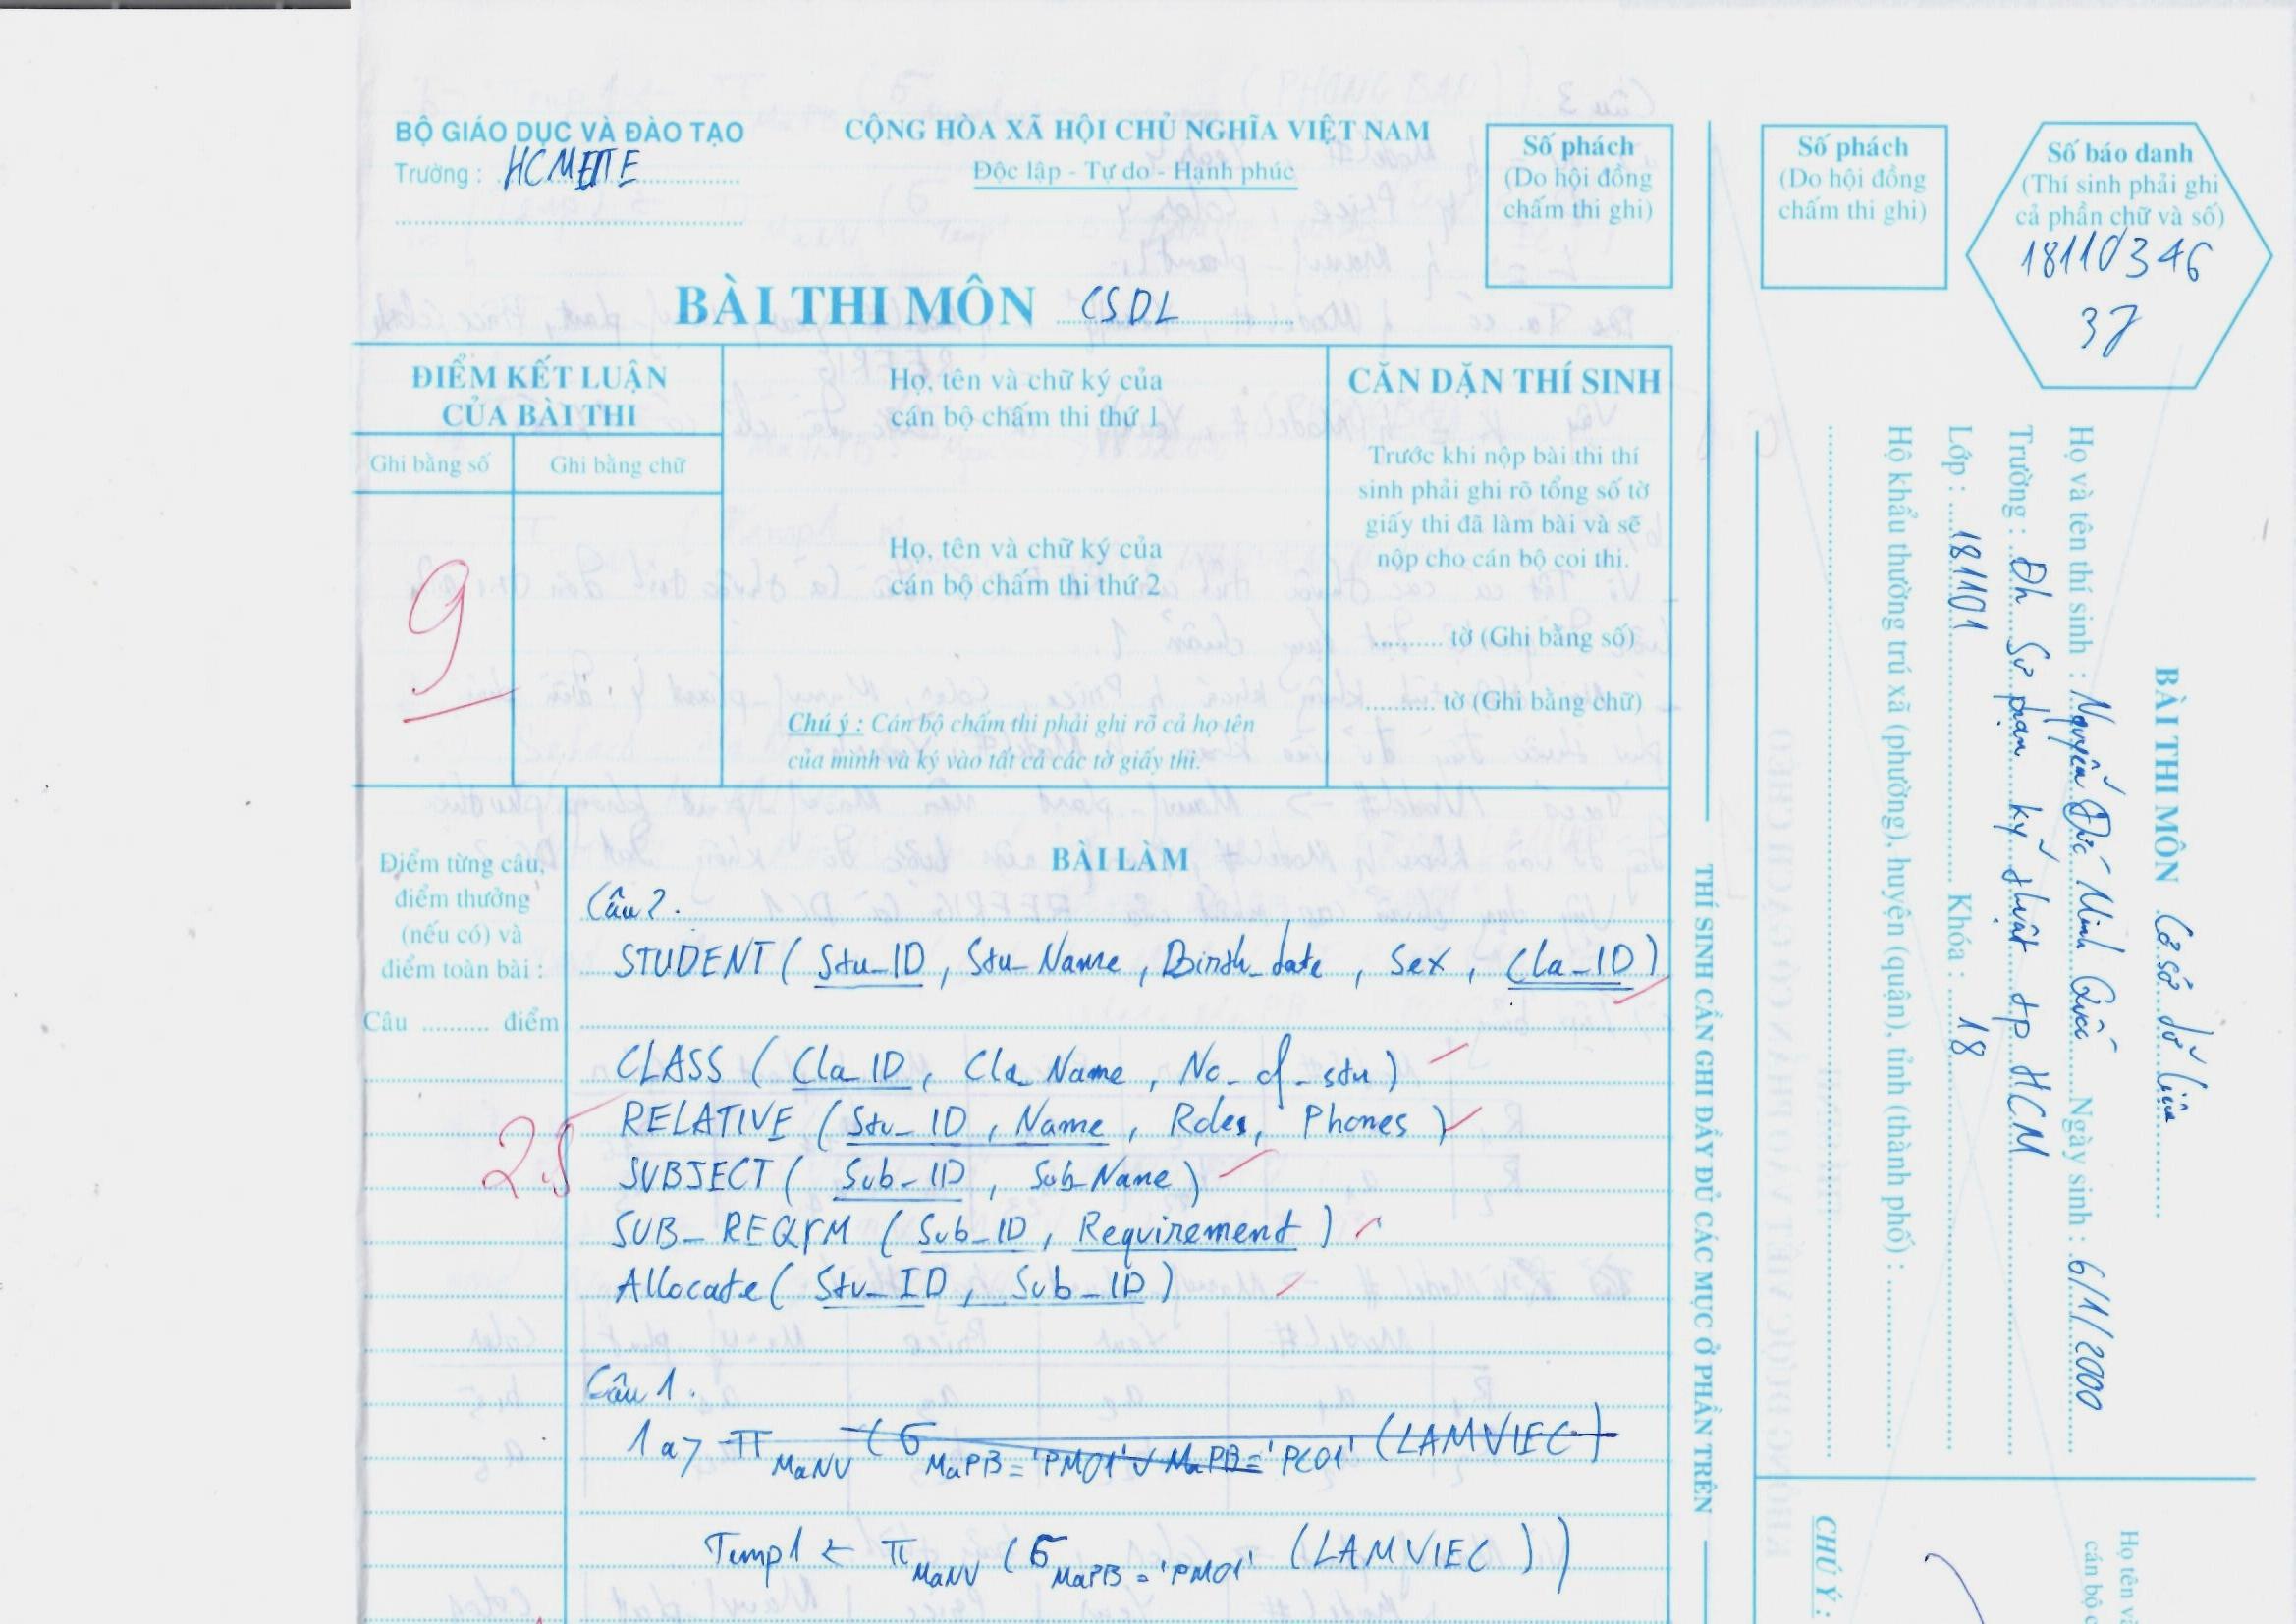 BỘ GIÁO DỤC VÀ ĐÀO TẠO
Trường : HCMUTE
CỘNG HÒA XÃ HỘI CHỦ NGHĨA VIỆT NAM
Độc lập - Tự do - Hạnh phúc
Số phách
(Do hội đồng
chấm thi ghi)
BÀI THI MÔN CSDL
ĐIỂM KẾT LUẬN
CỦA BÀI THI
Ghi bằng số
Ghi bằng chữ
9
Họ, tên và chữ ký của
cán bộ chấm thi thứ 1
Họ, tên và chữ ký của
cán bộ chấm thi thứ 2
Chú ý : Cán bộ chấm thi phải ghi rõ cả họ tên
của mình và ký vào tất cả các tờ giấy thi.
CĂN DẶN THÍ SINH
Trước khi nộp bài thi thí
sinh phải ghi rõ tổng số tờ
giấy thi đã làm bài và sẽ
nộp cho cán bộ coi thi.
.......... tờ (Ghi bằng số)
.......... tờ (Ghi bằng chữ)
Điểm từng câu,
điểm thưởng
(nếu có) và
điểm toàn bài :
Câu .......... điểm
2.5
BÀI LÀM
Câu 2.
STUDENT ( Stu_ID , Stu_Name , Birth_date , Sex , Cla_ID )
CLASS ( Cla_ID , Cla_Name , No_of_stu )
RELATIVE ( Stu_ID , Name , Roles , Phones )
SUBJECT ( Sub_ID , Sub_Name )
SUB_REQIM ( Sub_ID , Requirement )
Allocate ( Stu_ID , Sub_ID )
Câu 1.
1a> π MaNV ( σ MaPB = 'PM01' ∨ MaPB = 'PC01' (LAMVIEC)
Temp1 ← π MaNV ( σ MaPB = 'PM01' (LAMVIEC) )
THÍ SINH CẦN GHI ĐẦY ĐỦ CÁC MỤC Ở PHẦN TRÊN
Số phách
(Do hội đồng
chấm thi ghi)
Số báo danh
(Thí sinh phải ghi
cả phần chữ và số)
18110346
37
BÀI THI MÔN Cơ sở dữ liệu
Họ và tên thí sinh : Nguyễn Đức Minh Quốc Ngày sinh : 6/1/2000
Trường : Đh Sư phạm kỹ thuật tp HCM
Lớp : 181101 Khóa : 18
Hộ khẩu thường trú xã (phường), huyện (quận), tỉnh (thành phố) :
CHÚ Ý :
Họ tên và
cán bộ c